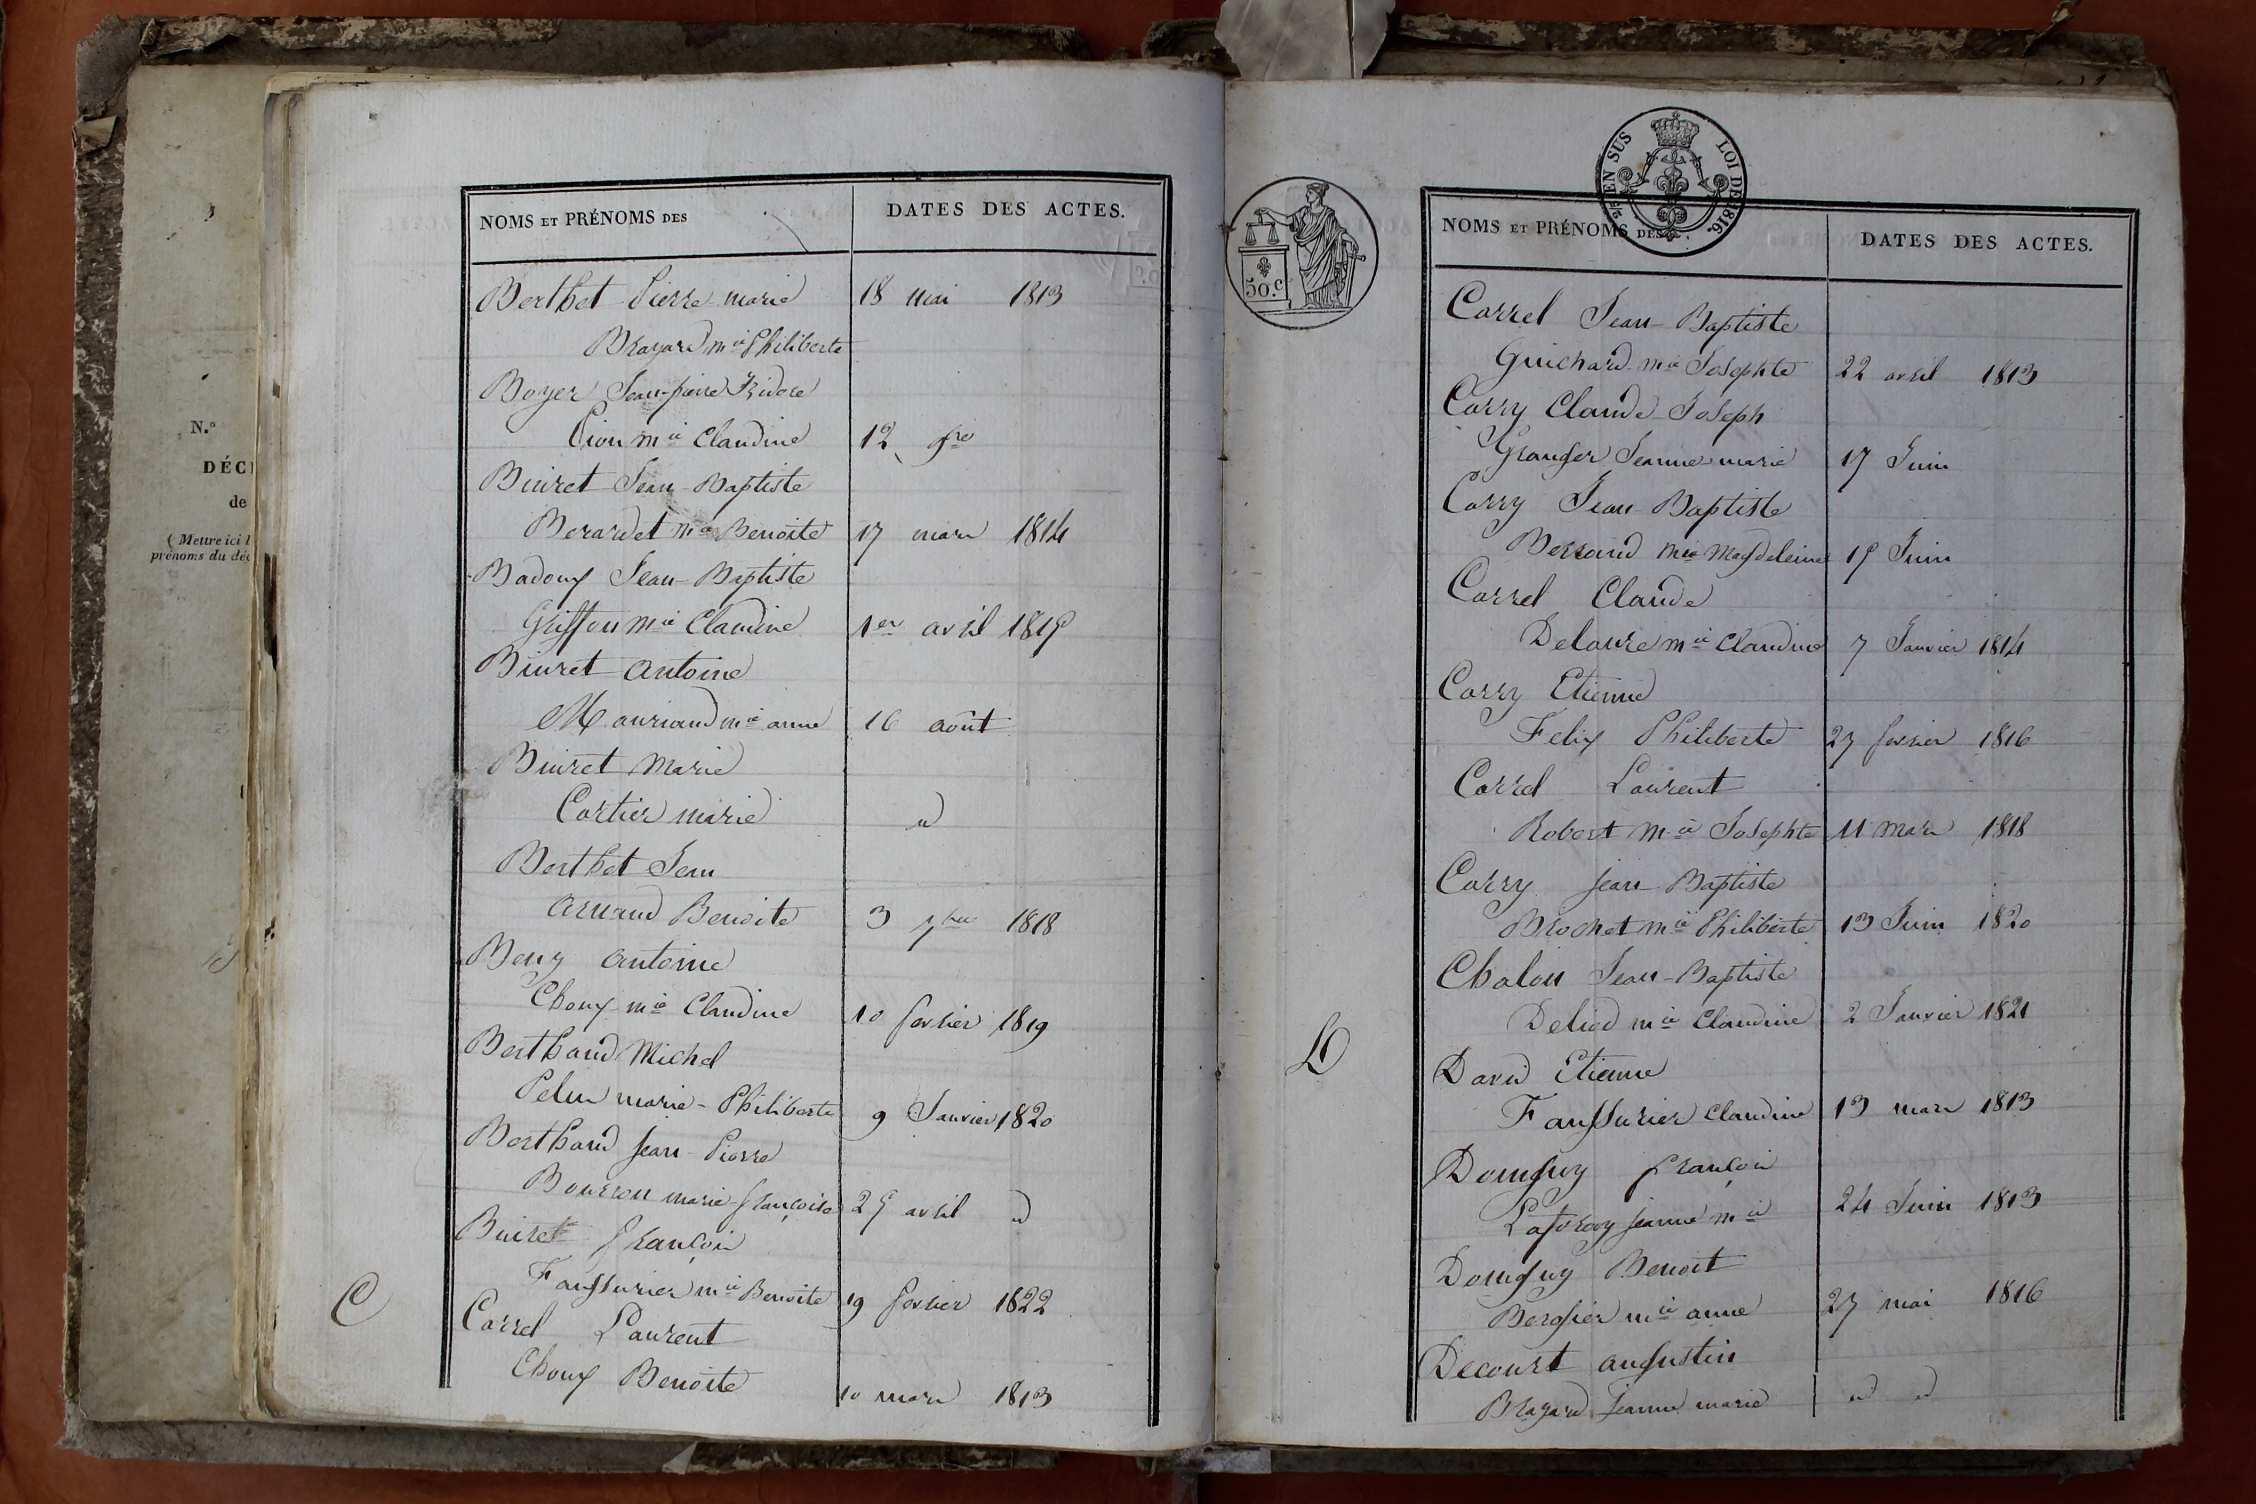 N.º
DÉCÈ
de
( Mettre ici l
prénoms du déc
NOMS ET PRÉNOMS DES
DATES DES ACTES.
Berthet Pierre marie 18 mai 1813
Brayard mie Philiberte
Boyer Jean-pierre Isidore
Pion mie Claudine 12 9bre
Buiret Jean-Baptiste
Berardet mie Benoite 17 mars 1814
Badoux Jean-Baptiste
Griffon mie Claudine 1er avril 1815
Buiret antoine
Mauriaud mie anne 16 août
Buiret Marie
Cartier marie "
Berthet Jean
Arnaud Benoite 3 7bre 1818
Beny antoine
Choux mie Claudine 10 fevrier 1819
Berthaud Michel
Pelin marie-Philiberte 9 Janvier 1820
Berthaud Jean-Pierre
Bourron marie françoise 25 avril "
Buiret françois
Faussurier mie Benoite 19 fevrier 1822
C
Carrel Laurent
Choux Benoite 10 mars 1813
EN SUS LOI DE 1816.
50.c
NOMS ET PRÉNOMS DES
DATES DES ACTES.
Carrel Jean-Baptiste
Guichard mie Josephte 22 avril 1813
Carry Claude Joseph
Granger Jeanne marie 17 Juin
Carry Jean-Baptiste
Berraud mie Magdeleine 15 Juin
Carrel Claude
Delaure mie Claudine 7 Janvier 1814
Carry Etienne
Felix Philiberte 27 fevrier 1816
Carrel Laurent
Robert mie Josephte 11 mars 1818
Carry Jean-Baptiste
Brochet mie Philiberte 13 Juin 1820
Chalon Jean-Baptiste
Deliod mie Claudine 2 Janvier 1821
D
David Etienne
Faussurier Claudine 13 mars 1813
Domguy françois
Lafrenoy Jeanne mie 24 Juin 1813
Domguy Benoit
Bergier mie anne 27 mai 1816
Decourt augustin
Brayard Jeanne marie " "